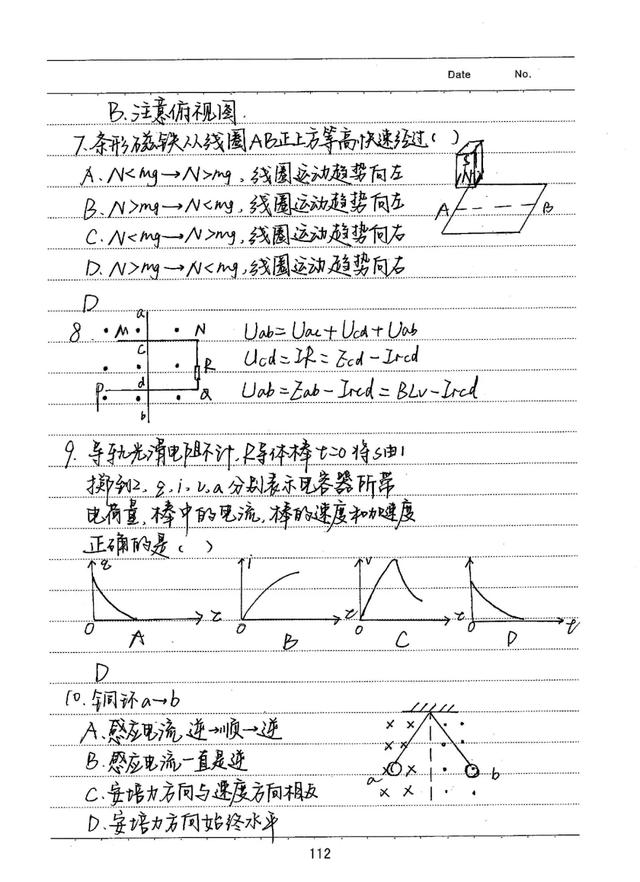 Date No.
B.注意俯视图.
7.条形磁铁从线圈AB正上方等高快速经过( )
A.N<mg→N>mg,线圈运动趋势向左
B.N>mg→N<mg,线圈运动趋势向左
C.N<mg→N>mg,线圈运动趋势向右
D.N>mg→N<mg,线圈运动趋势向右
A B
D
8
a
M N
c
R
P d Q
b
Uab=Uac+Ucd+Uab
Ucd=IR=Ecd-Ircd
Uab=Eab-Ircd=BLv-Ircd
9.导轨光滑电阻不计,R导体棒t=0将S由1
掷到2,q,i,v,a分别表示电容器所带
电荷量,棒中的电流,棒的速度和加速度
正确的是( )
q i v
t t t t
0 0 0 0
A B C D
D
10.铜环a→b
A.感应电流,逆→顺→逆
B.感应电流一直是逆
C.安培力方向与速度方向相反
D.安培力方向始终水平
a b
112